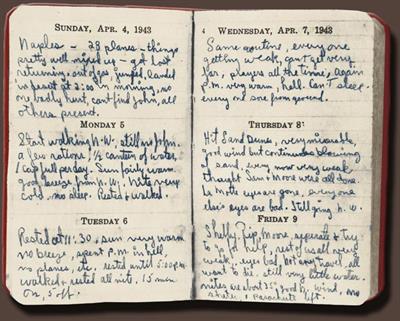 SUNDAY, APR. 4, 1943
Naples — 28 planes — things
pretty well mixed up — got lost
returning, out of gas, jumped, landed
in desert at 2:00 in morning, no
one badly hurt, cant find John, all
others present.
MONDAY 5
Start walking N.W., still no John.
a few rations, ½ canteen of water,
1 cap full per day. Sun fairly warm
good breeze from N.W. Nite very
cold. no sleep. Rested & walked.
TUESDAY 6
Rested at 11:30, sun very warm
no breeze, spent P.M. in hell,
no planes, etc. rested until 5:00 P.M.
walked & rested all nite. 15 min
on, 5 off.
4 WEDNESDAY, APR. 7, 1943
Same routine, every one
getting weak, cant get very
far, prayers all the time, again
P.M. very warm, hell. Can't sleep.
every one sore from ground.
THURSDAY 8
Hit Sand Dunes, very miserable,
good wind but continuous blowing
of sand, every now very weak,
thought Sam & Moore were all done.
La Motte eyes are gone, every one
else's eyes are bad. Still going N.W.
FRIDAY 9
Shelly, Rip, Moore separate & try
to go for help, rest of us all very
weak, eyes bad, not any travel, all
want to die. still very little water.
nites are about 35°, good N. wind, no
shelter, 1 parachute left.